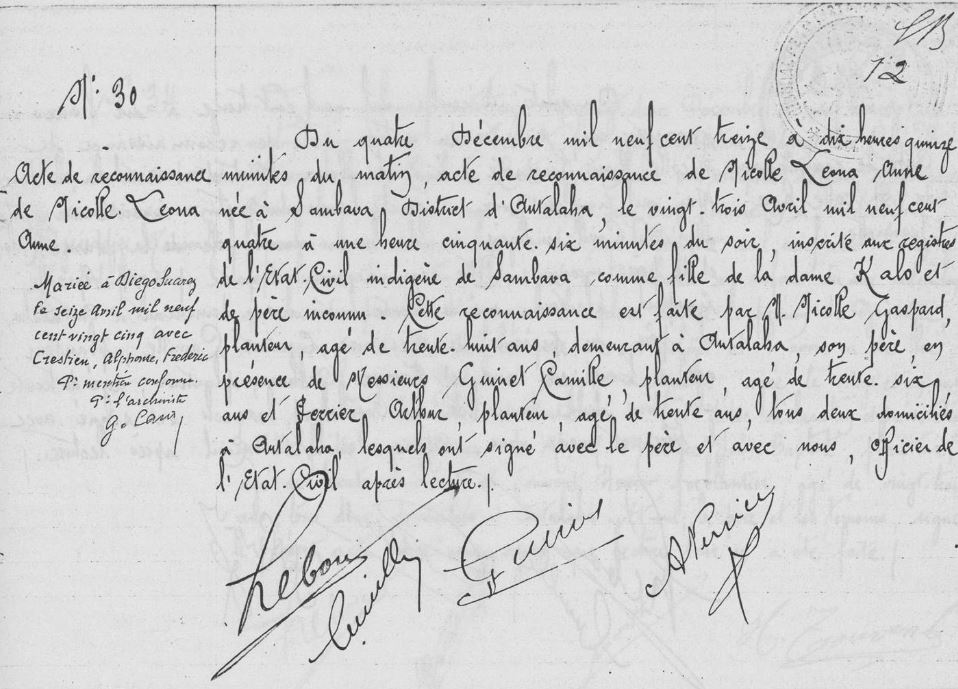 12
N° 30
Acte de reconnaissance
de Nicolle Leona
Anne.
Mariée à Diego Suarez
le seize avril mil neuf
cent vingt cinq avec
Crestien, Alphonse, Frédéric
Pr mention conforme.
Pr l'archiviste
Du quatre Décembre mil neuf cent treize à dix heures quinze
minutes du matin, acte de reconnaissance de Nicolle Leona Anne
née à Sambava, District d'Antalaha, le vingt-trois Avril mil neuf cent
quatre à une heure cinquante-six minutes du soir, inscrite aux registres
de l'Etat-Civil indigène de Sambava comme fille de la dame Kalo et
de père inconnu. Cette reconnaissance est faite par M. Nicolle Gaspard,
planteur, agé de trente-huit ans, demeurant à Antalaha, son père, en
présence de Messieurs Guinet Camille, planteur, agé de trente-six
ans et Ferrier Arthur, planteur, agé de trente ans, tous deux domiciliés
à Antalaha, lesquels ont signé avec le père et avec nous, officier de
l'Etat-Civil après lecture.